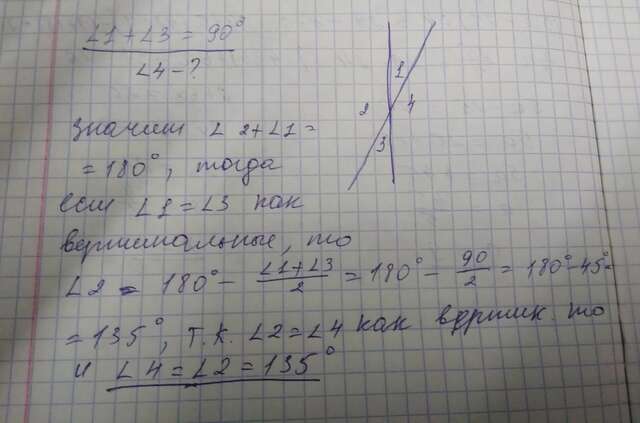 ∠1+∠3 = 90°
∠4-?
1
2
4
3
Значит ∠2+∠1=
=180°, тогда
если ∠1=∠3 как
вертикальные, то
∠2 = 180° - (∠1+∠3)/2 = 180° - 90/2 = 180°-45°=
=135°, т.к. ∠2=∠4 как вертик. то
и ∠4=∠2=135°